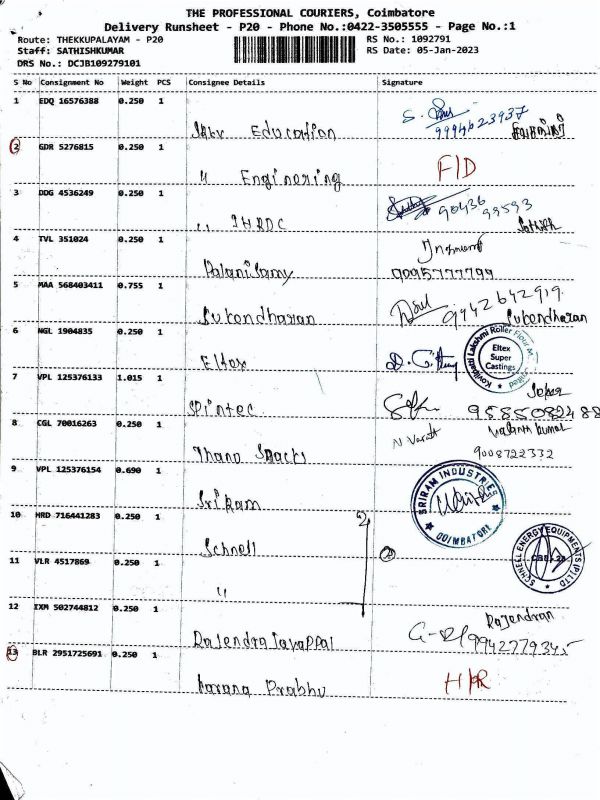 THE PROFESSIONAL COURIERS, Coimbatore
Delivery Runsheet - P20 - Phone No.:0422-3505555 - Page No.:1
Route: THEKKUPALAYAM - P20
RS No.: 1092791
Staff: SATHISHKUMAR
RS Date: 05-Jan-2023
DRS No.: DCJB109279101
S No Consignment No Weight PCS Consignee Details Signature
1 EDQ 16576388 0.250 1 Education 9994623937
2 GDR 5276815 0.250 1 " Enginering F/D
3 DDG 4536249 0.250 1 " IHRDC 90436 99593
Sathish
4 TVL 351024 0.250 1 Palanisamy 9095777799
5 MAA 568403411 0.755 1 Sukendharan 9442642919
Sukendharan
6 NGL 1904835 0.250 1 Eltex
Eltex Super Castings
7 VPL 125376133 1.015 1 Spintec 9585082488
8 CGL 70016263 0.250 1 Thana Snacks 9008722332
9 VPL 125376154 0.690 1 Sriram
SRIRAM INDUSTRIES
COIMBATORE
10 HRD 716441283 0.250 1 Schnell 2
SCHNELL ENERGY EQUIPMENTS (P) LTD
11 VLR 4517869 0.250 1 "
12 IXM 502744812 0.250 1 Rajendra 9942779345
Rajendran
13 BLR 2951725691 0.250 1 Karana Prabhu